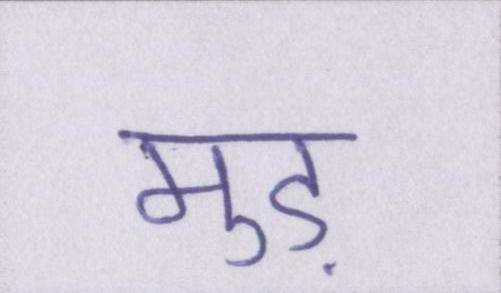 मुड़